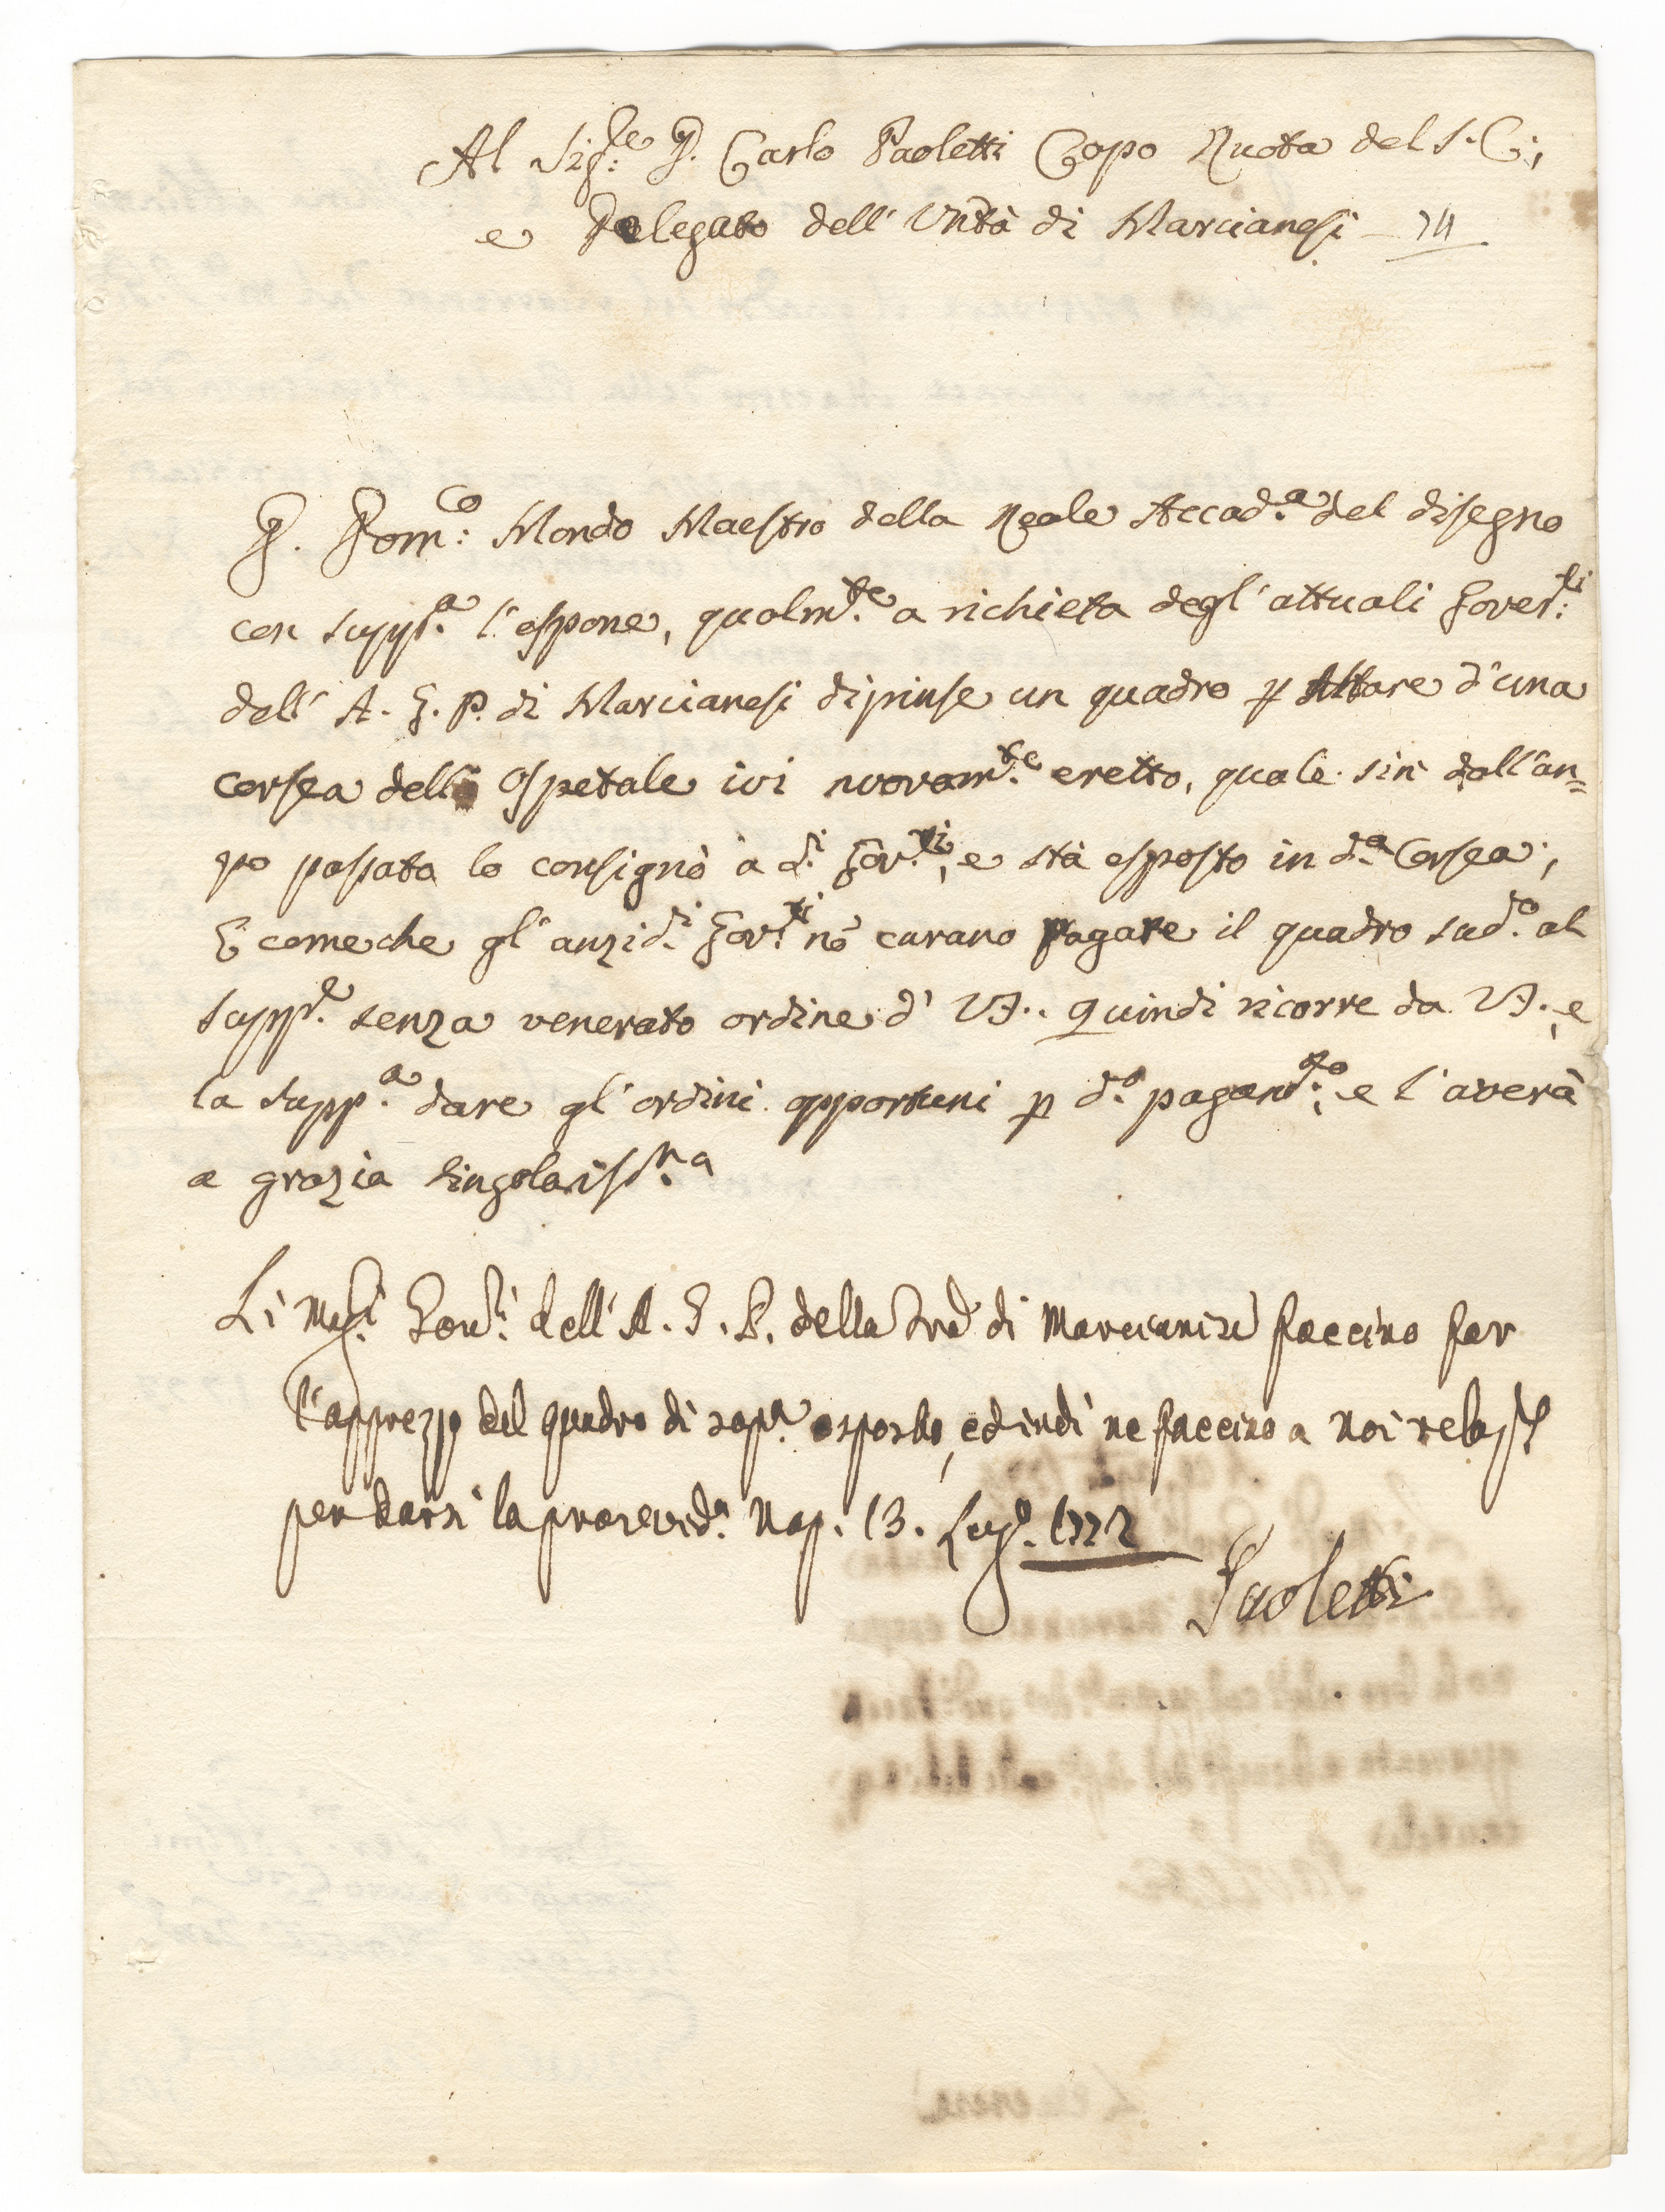 Al Sig.re D. Carlo Paoletti Capo Ruota del S. C.,
e Delegato dell' Vntà di Marcianesi
D. Dom.co Mondo Maestro della Reale Accad.a del disegno
con supp.a l'espone, qualm.te a richiesta degl' attuali Gover.ti
dell' A. G. P. di Marcianesi dipinse un quadro p Altare d'una
corsea dello Ospetale ivi nuovam.te eretto, quale sin dall'an=
no passato lo consignò a d.i Gov.ti, e stà esposto in d.a Corsea;
E come che gl' anzid.i Gov.ti nō curano pagare il quadro sud.o al
supp.e senza venerato ordine d' VS.. Quindi ricorre da VS., e
la supp.a dare gl' ordini opportuni p d.o pagam.to, e l'averà
a grazia singolariss.ma
Li Mag.ci Gov.ri dell' A. G. P. della Trā di Marcianise faccino far
l'apprezzo del quadro di sop.a esposto, ed indi ne faccino a noi relaz.e
per darsi la providā. Nap. 13. Lug.o 1772
Paoletti